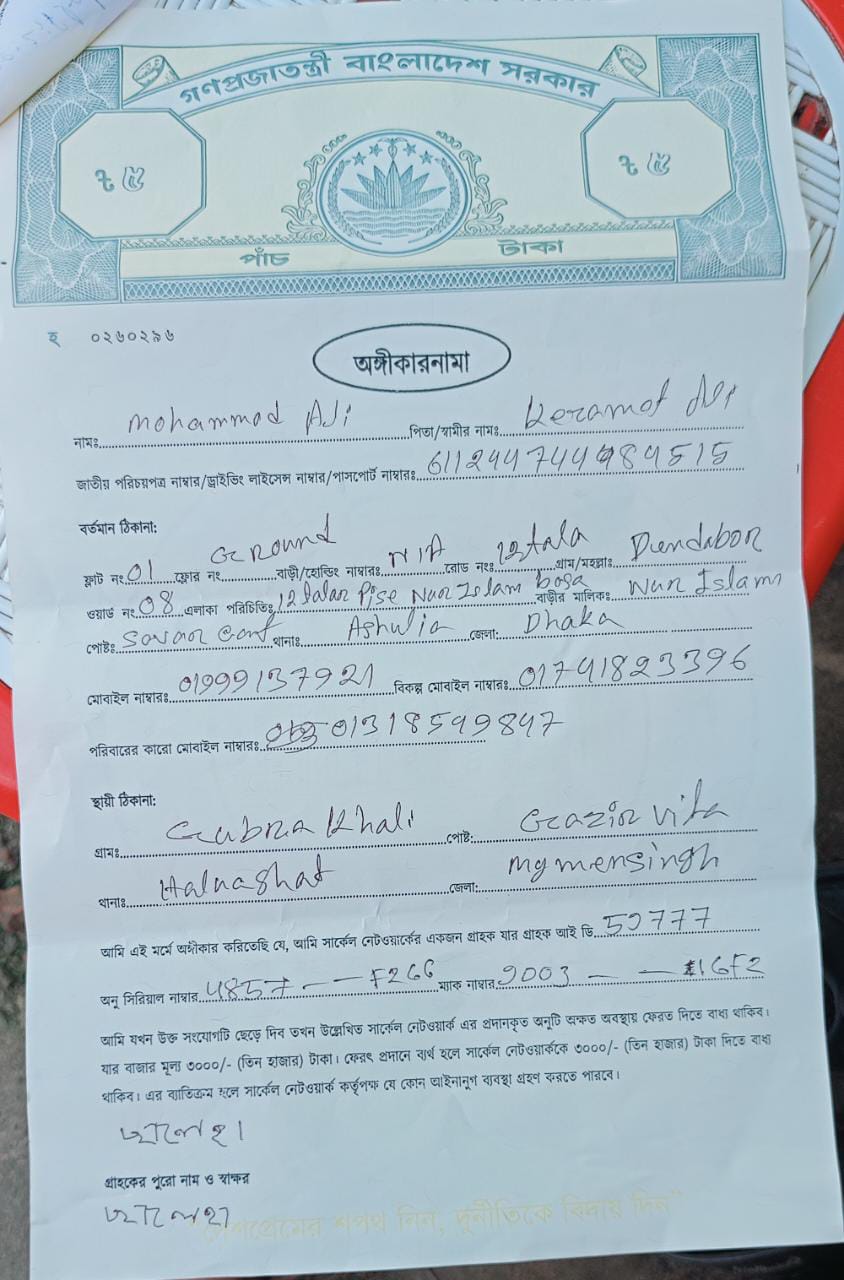 গণপ্রজাতন্ত্রী বাংলাদেশ সরকার
৳ ৫ ৳ ৫
পাঁচ টাকা
হ ০২৬০২৯৬
অঙ্গীকারনামা
নামঃ Mohammod Ali পিতা/স্বামীর নামঃ Keramot Ali
জাতীয় পরিচয়পত্র নাম্বার/ড্রাইভিং লাইসেন্স নাম্বার/পাসপোর্ট নাম্বারঃ
বর্তমান ঠিকানা:
ফ্লাট নং 01 ফ্লোর নং Ground বাড়ী/হোল্ডিং নাম্বারঃ N/A রোড নংঃ 12 tala গ্রাম/মহল্লাঃ Dendabor
ওয়ার্ড নং 08 এলাকা পরিচিতিঃ 12 Nur Islam basa বাড়ীর মালিকঃ Nur Islam
পোষ্টঃ Savar Cant থানাঃ Ashulia জেলা: Dhaka
মোবাইল নাম্বারঃ 01999137921 বিকল্প মোবাইল নাম্বারঃ 01741823396
পরিবারের কারো মোবাইল নাম্বারঃ 01318599847
স্থায়ী ঠিকানা:
গ্রামঃ Gabra Khali পোষ্ট: Gazir vita
থানাঃ Haluaghat জেলা: Mymensingh
আমি এই মর্মে অঙ্গীকার করিতেছি যে, আমি সার্কেল নেটওয়ার্কের একজন গ্রাহক যার গ্রাহক আই ডি 50777
অনু সিরিয়াল নাম্বার 4857 -- F266 ম্যাক নাম্বার 9003 - - 1GF2
আমি যখন উক্ত সংযোগটি ছেড়ে দিব তখন উল্লেখিত সার্কেল নেটওয়ার্ক এর প্রদানকৃত অনুটি অক্ষত অবস্থায় ফেরত দিতে বাধ্য থাকিব।
যার বাজার মূল্য ৩০০০/- (তিন হাজার) টাকা। ফেরৎ প্রদানে ব্যর্থ হলে সার্কেল নেটওয়ার্ককে ৩০০০/- (তিন হাজার) টাকা দিতে বাধ্য
থাকিব। এর ব্যতিক্রম হলে সার্কেল নেটওয়ার্ক কর্তৃপক্ষ যে কোন আইনানুগ ব্যবস্থা গ্রহণ করতে পারবে।
গ্রাহকের পুরো নাম ও স্বাক্ষর
"দেশপ্রেমের শপথ নিন, দুর্নীতিকে বিদায় দিন"